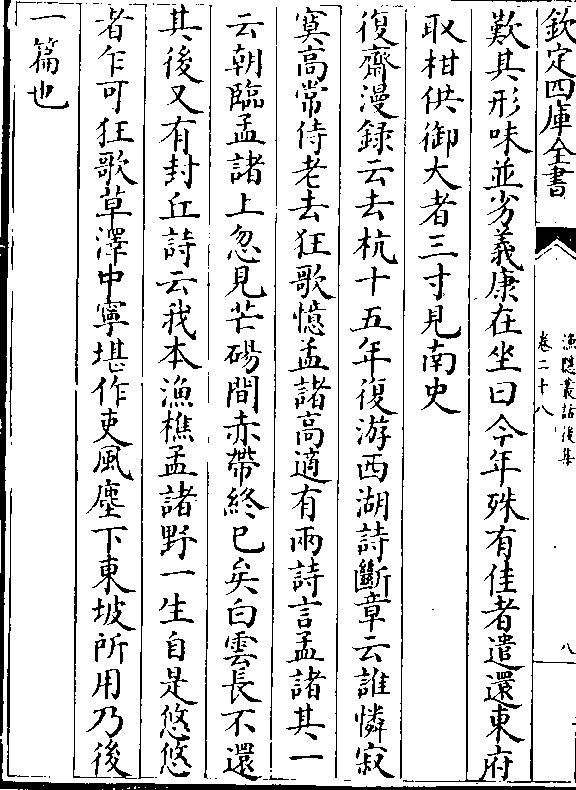 欽定四庫全書
漁隱叢話後集
卷二十八
八
歎其形味並劣義康在坐曰今年殊有佳者遣還東府
取柑供御大者三寸見南史
復齋漫録云去杭十五年復游西湖詩斷章云誰憐寂
寞高常侍老去狂歌憶孟諸高適有兩詩言孟諸其一
云朝臨孟諸上忽見芒碭間赤帶終已矣白雲長不還
其後又有封丘詩云我本漁樵孟諸野一生自是悠悠
者乍可狂歌草澤中寧堪作吏風塵下東坡所用乃後
一篇也